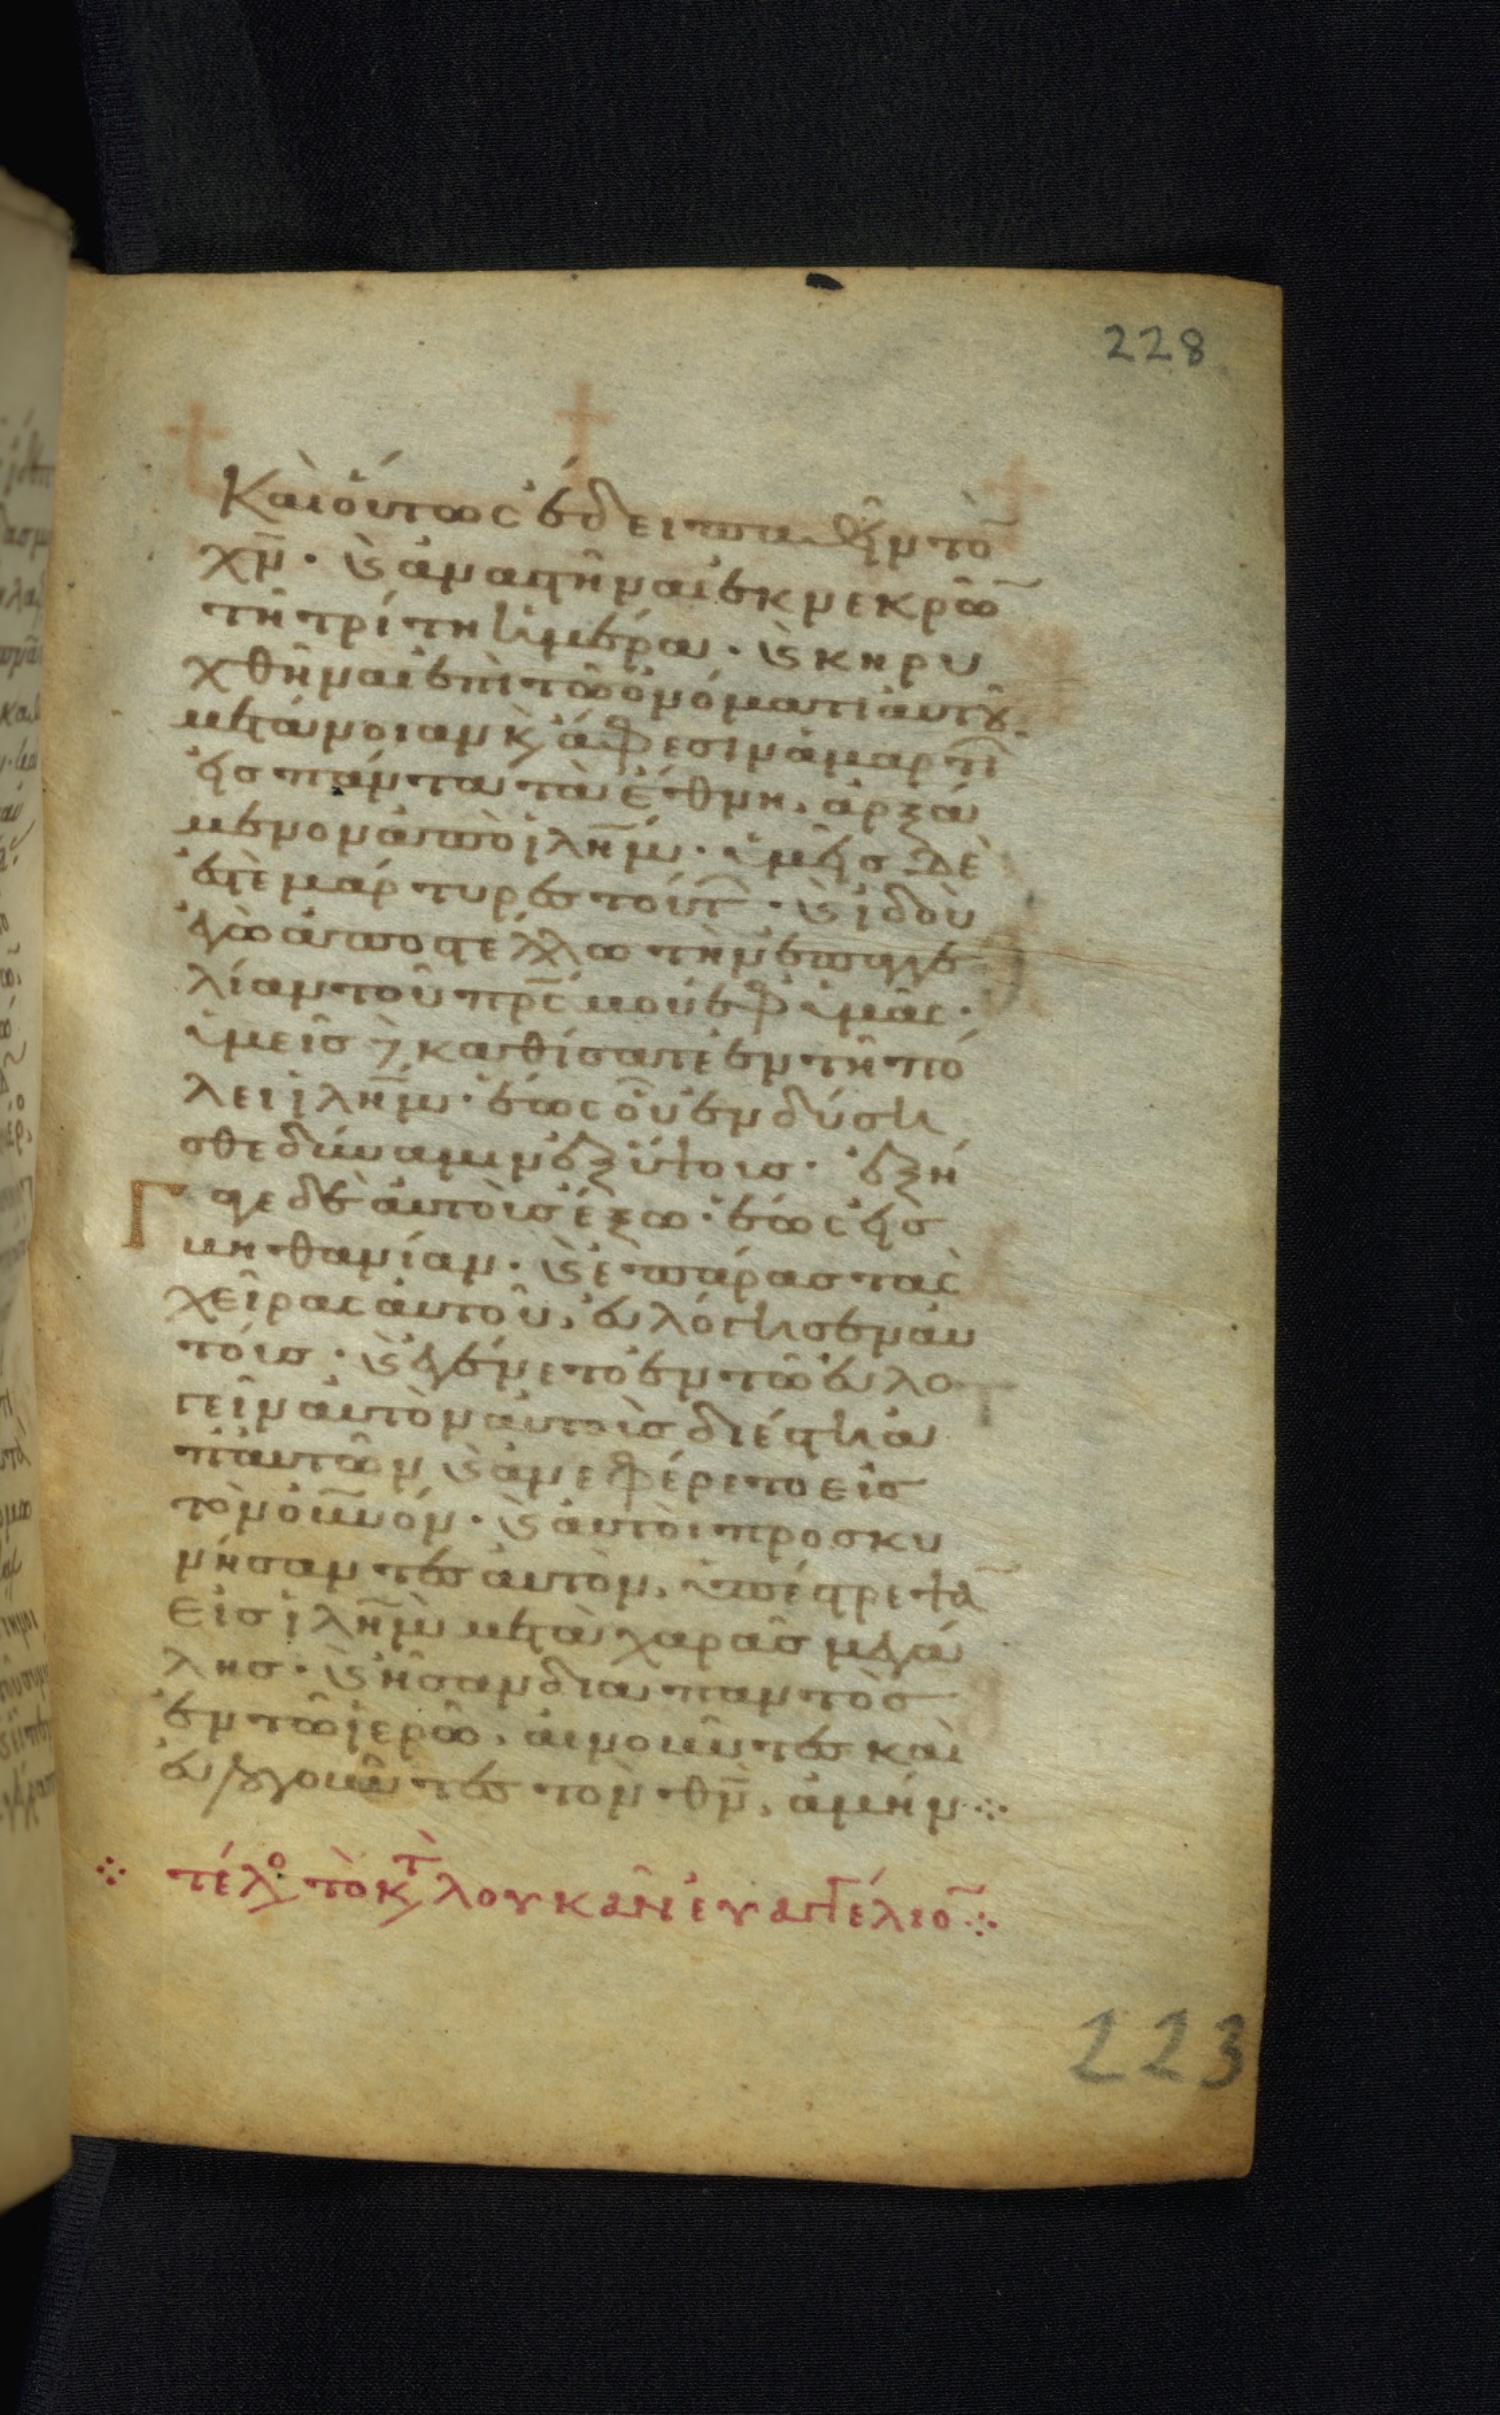 228
Καὶ οὕτως ἔδει παθεῖν τὸ̄
χν̄· ϗ ἀναστῆναι ἐκ νεκρῶ̄
τῆ τρίτη ἡμέρα· ϗ κηρυ
χθῆναι ἐπὶ τῶ ὀνόματι αὐτοῦ
μετάνοιαν κ(αὶ) ἄφεσιν ἁμαρτι
εἰς πάντα τὰ ἔθνη, ἀρξά
μενον ἀπὸ ἰλη̄μ· ὑμεῖς δὲ
ἐστὲ μάρτυρες τούτ· ϗ ἰδοὺ
ἐγὼ ἀποστέλλω τὴν ἐπαγγε
λίαν τοῦ πρ̄ς μου ἐφ ὑμᾶς·
ὑμεῖς δὲ καθίσατε ἐν τῆ πό
λει ἰλη̄μ· ἕως οὗ ἐνδύση
σθε δύναμιν ἐξ ὕψους· ἐξή
Γ γε δὲ αὐτοὺς ἔξω· ἕως εἰς
βηθανίαν· ϗ ἐπάρας τὰς
χεῖρας αὐτοῦ, εὐλόγησεν αὐ
τούς· ϗ ἐγένετο ἐν τῶ εὐλο
γεῖν αὐτὸν αὐτοὺς διέστη ἀ
π' αὐτῶν ϗ ἀνεφέρετο εἰς
τὸν οὐ̄νόν· ϗ αὐτοὶ προσκυ
νήσαντες αὐτὸν, ὑπέστρεψᾱ
εἰς ἰλη̄μ μετὰ χαρᾶς μεγά
λης· ϗ ἦσαν διαπαντὸς
ἐν τῶ ἱερῶ, αἰνοῦντες καὶ
εὐλογοῦντες τὸν θν̄, ἀμήν
τέλο τὸ κτ λουκᾶν εὐαγγέλιο̄
223